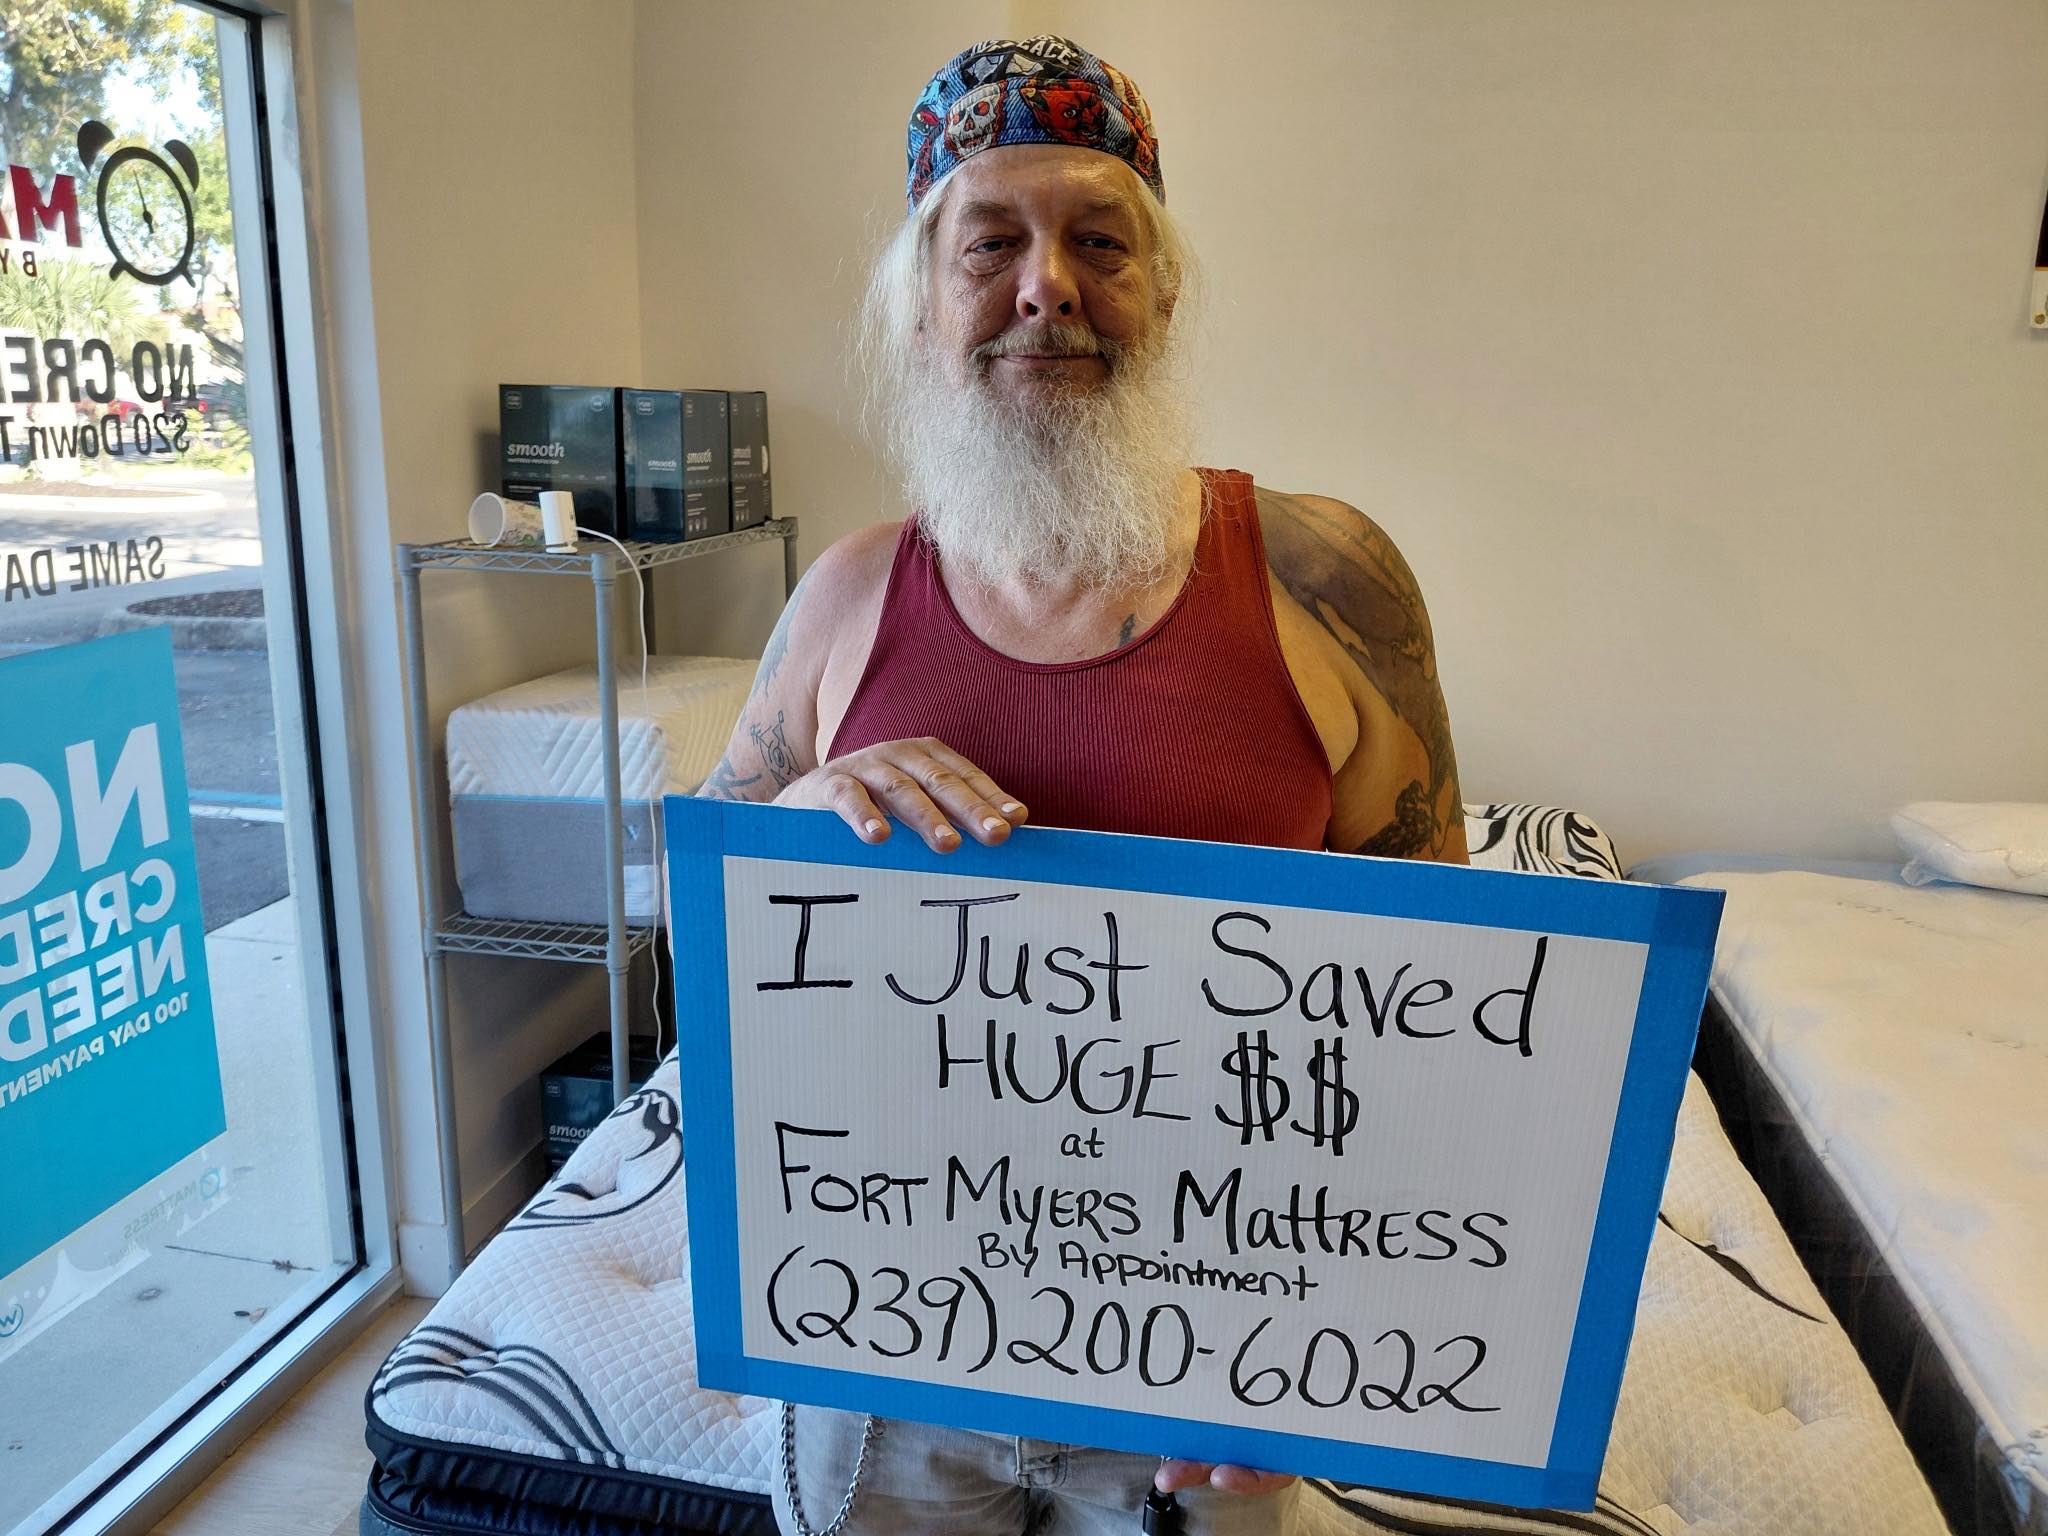 I Just Saved
HUGE $$
at
FORT MYERS MattRESS
By Appointment
(239) 200-6022
smooth
MATTRESS PROTECTOR
smooth
smooth
smooth
smooth
NO CRE
$20 Down T
SAME DA
NO
CRED
NEED
100 DAY PAYMENT
MATTRESS